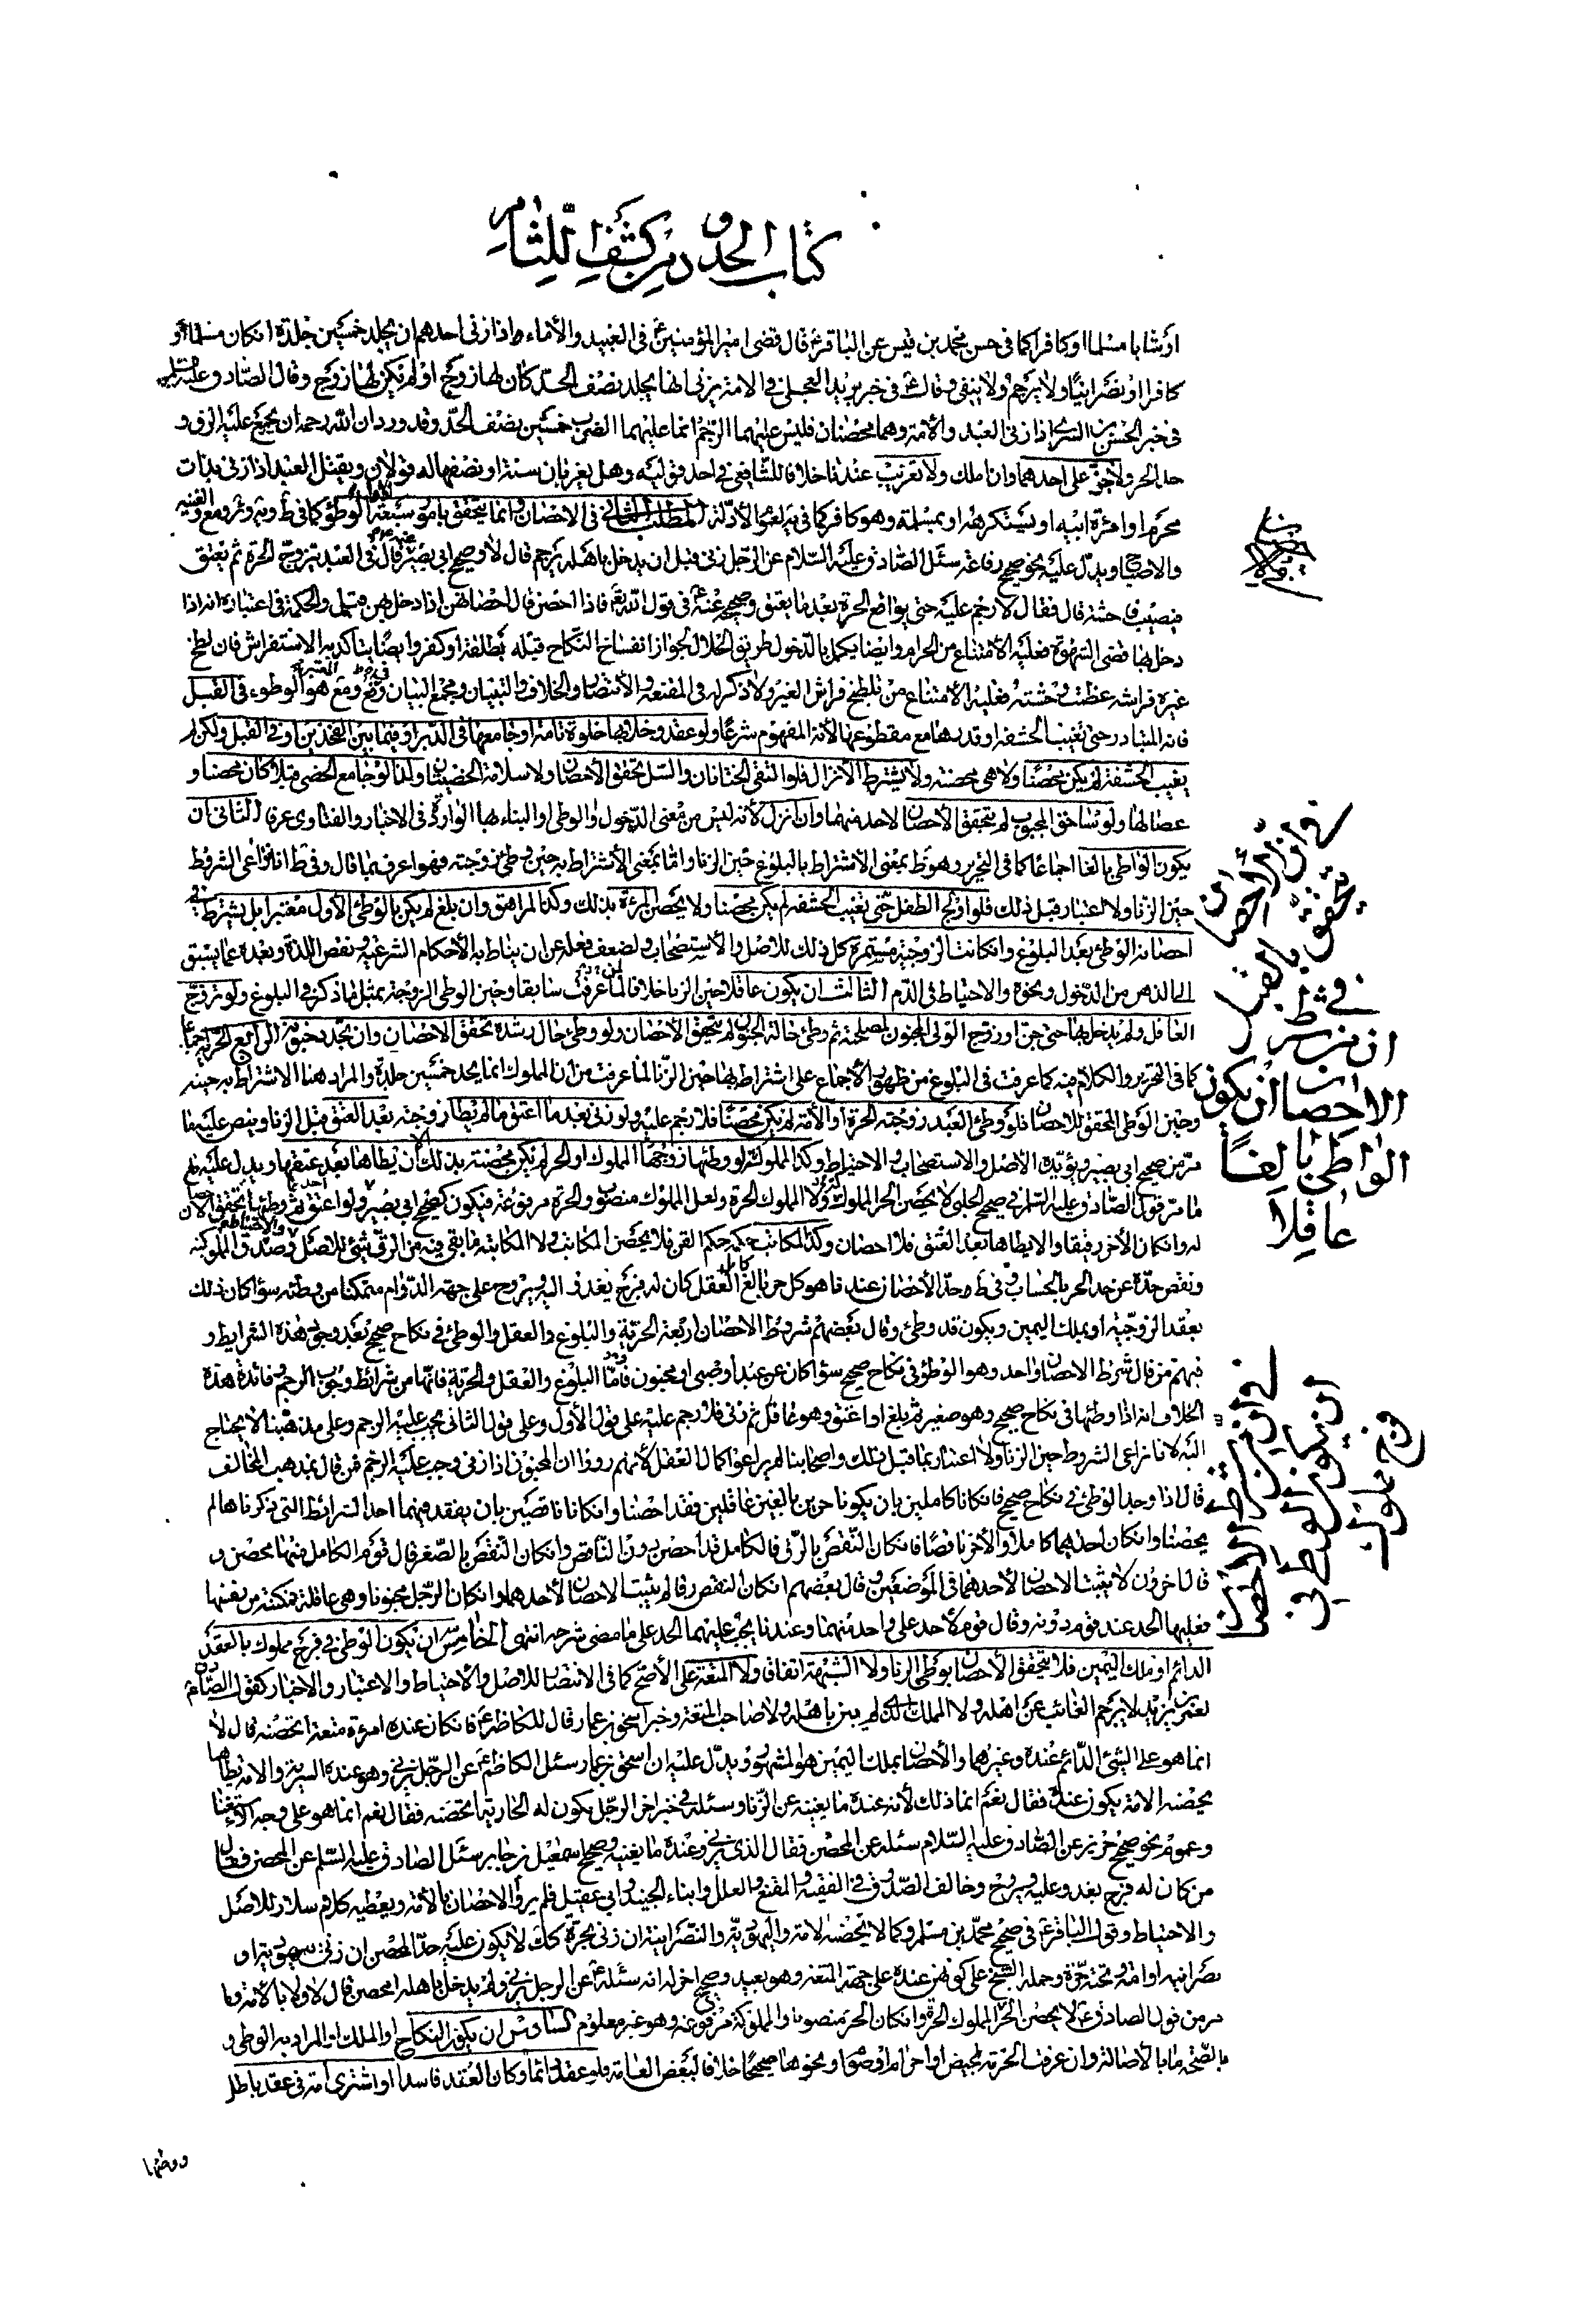 كتاب الحدود من كشف اللثام
او شابا مسلما او كافرا كما في حسن محمد بن قيس عن الباقر ع قال قضى امير المؤمنين ع في العبيد والاماء اذا زنى احدهم ان يجلد خمسين جلدة ان كان مسلما او
كافرا او نصرانيا ولا يرجم ولا ينفى وقال ع في خبر بريد العجلي في الامة يزني انها يجلد نصف الحد كان لها زوج او لم يكن لها زوج وقال الصادق عليه السلم
في خبر الحسن بن السري اذا زنى العبد والأمة وهما محصنان فليس عليهما الرجم انما عليهما الضرب خمسين نصف الحد وقد ورد ان الله رحمه ان يجمع عليه الرق و
حد الحر ولا جز على احدهما وان ملك ولا تغريب عندنا خلافا للشافعي في احد قوليه وهل يغربان سنة او نصفها له قولان ويقتل العبد اذا زنى بذات
محرم او امرئة ابيه او يستكرهه او بمسلمة وهو كافر كما في لعموم الأدلة المطلب الثاني في الاحصان وانما يتحقق بامور سبعة الأول الوطؤ كما في
ويدل عليه نحو صحيح رفاعة سئل الصادق عليه السلام عن الرجل يزني قبل ان يدخل باهله يرجم قال لا وصحيح ابي بصير قال في العبد يتزوج الحرة ثم يعتق
فيصيب فاحشة قال فقال لا رجم عليه حتى يواقع الحرة بعد ما يعتق وصحيح عنه ع في قول الله تع فاذا احصن قال احصانهن اذا دخل بهن والحكمة في اعتباره انه اذا
دخل بها قضى الشهوة فعليه الامتناع من الحرام وايضا يكمل بالدخول طريق الحلال لجواز انفساخ النكاح قبله بطلقة او كفر وايضا يتأكد به الاستفراش فان لطخ
غيره فراشه عظمت وحشته فعليه الامتناع من تلطيخ فراش الغير ولا ذكر له في المقنعة والانتصار والخلاف والتبيان ومجمع البيان والمعتبر هو الوطوء في القبل
فانه المتبادر حتى تغيب الحشفة او قدرها مع مقطوعها لأنه المفهوم شرعا ولو عقد وخلا بها خلوة تامة او جامعها في الدبر او فيما بين الفخذين او في القبل ولكن لم
يغيب الحشفة لم يكن محصنا ولا هي محصنة ولا يشترط الانزال فلو التقى الختانان واكسل تحقق الاحصان ولا سلامة الخصيتين ولذا لو جامع الخصي قبلا كان محصنا و
لها ولو ساحق المجبوب لم يتحقق الأحصان لاحد منهما وان انزل لأنه ليس من معنى الدخول والوطي او البناء بها الواردة في الاخبار والفتاوى عرفا الثاني ان
يكون الواطي بالغا اجماعا كما في التحرير وهو بمعنى الاشتراط بالبلوغ حين الزنا واما بمعنى الاشتراط به حين وطئ زوجته فهو اعرف بما قال وفي ط انا نراعي الشروط
حين الزنا ولا اعتبار قبل ذلك فلو اولج الطفل حتى تغيب الحشفة لم يكن محصنا ولا يحصن المرئة بذلك وكذا المراهق وان بلغ لم يكن بالوطئ الأول معتبرا بل يشترط في
احصانه الوطئ بعد البلوغ وان كانت الزوجية مستمرة كل ذلك للاصل والاستصحاب ولضعف فعله عن ان يناط به الأحكام الشرعية ونقص اللذة وبعده عما يسبق
الى الذهن من الدخول ونحوه والاحتياط في الدم الثالث ان يكون عاقلا حين الزنا خلافا لما عرفت سابقا وحين الوطي لزوجته بمثل ما ذكر في البلوغ ولو تزوج
العاقل ولم يدخل بها حتى جن او زوج الولي المجنون لمصلحة ثم وطئ حالة الجنون لم يتحقق الأحصان ولو وطئ حال رشده تحقق الاحصان وان تجدد جنونه الرابع الحرية اجماعا
كما في التحرير والكلام فيه كما عرفت في البلوغ من ظهور الاجماع على اشتراط بها حين الزنا لما عرفت من ان المملوك انما يحد خمسين جلدة والمراد هنا الاشتراط به حينه
وحين الوطي المحقق للاحصان فلو وطئ العبد زوجته الحرة او الأمة لم يكن محصنا فلا رجم عليه ولو زنى بعد ما اعتق ما لم يطأ زوجته بعد العتق قبل الزنا وينص عليه ما
مر من صحيح ابي بصير ويؤيده الأصل والاستصحاب والاحتياط وكذا المملوكة لو وطئها زوجها المملوك او الحر لم يكن محصنة بذلك الا ان يطأها بعد عتقها ويدل عليه
ما مر قول الصادق عليه السلم في صحيح الحلبي لا يحصن الحر المملوكة ولا المملوك الحرة ولعل المملوك منصوب والحرة مرفوعة فيكون كصحيح ابي بصير ولو اعتق احدهما ثم وطئها تحقق الاحصان
له وان كان الأخر رقيقا والا يطاها بعد العتق فلا احصان وكذا المكاتب حكمه حكم القن فلا يحصن المكاتب ولا المكاتبة ما بقي فيه من الرق شيئ للاصل وصدق المملوكية
ونقص حده عن حد الحر بالحساب وفي ط وحد الأحصان عندنا هو كل حر بالغ كامل العقل كان له فرج يغدو اليه ويروح على جهة الدوام متمكنا من وطئه سؤا كان ذلك
بعقد الزوجية او بملك اليمين ويكون قد وطئ وقال بعضهم شروط الاحصان اربعة الحرية والبلوغ والعقل والوطئ في نكاح صحيح بعد وجود هذه الشرايط و
فيهم من قال شرط الاحصان واحد وهو الوطؤ في نكاح صحيح سؤا كان عن عبد او صبي او مجنون فاما البلوغ والعقل والحرية فانها من شرائط وجوب الرجم وفائدة هذه
الخلاف انه اذا وطئها في نكاح صحيح وهو صغير ثم بلغ او اعتق وهو عاقل ثم زنى فلا رجم عليه على قول الأول وعلى قول الثاني يجب عليه الرجم وعلى مذهبنا لا يحتاج
اليه لانا نراعي الشروط حين الزنا ولا اعتبار بما قبل ذلك واصحابنا لم يراعوا كمال العقل لأنهم رووا ان المجنون اذا زنى وجب عليه الرجم فمن قال بمذهب المخالف
قال اذا وجد الوطئ في نكاح صحيح فان كانا كاملين بان يكونا حرين بالغين عاقلين فقد احصنا وان كانا ناقصين بان يفقد فيهما احد الشرائط التي ذكرناها لم
يحصنا وان كان احدهما كاملا والأخر ناقصا فان كان النقص بالرق فالكامل قد احصن دون الناقص وان كان النقص بالصغر قال قوم الكامل فيهما محصن و
قال اخرون لا يثبت الاحصان لأحدهما في الموضعين وقال بعضهم ان كان النقص رقا لم يثبت الاحصان لأحدهما وان كان الرجل مجنونا وهي عاقلة فمكنته من نفسها
فعليها الحد عند قوم دونه وقال قوم لا حد على واحد منهما وعندنا يجب عليهما الحد على ما مضى شرحه انتهى الخامس ان يكون الوطئ في فرج مملوك بالعقد
الدائم او ملك اليمين فلا يتحقق الأحصان بوطي الزنا ولا الشبهة اتفاقا ولا المتعة على الأصح كما في الانتصار للاصل والاحتياط والاعتبار والاخبار كقول الصادق
لعمر بن يزيد لا يرجم الغائب عن اهله ولا المملك الذي لم يبن باهله ولا صاحب المتعة وخبر اسحق بن عمار قال للكاظم ع فان كان عنده امرئة متعة اتحصنه قال لا
انما هو على الشيئ الدائم عنده وغيرهما والأحصان بملك اليمين هو المشهور ويدل عليه ان اسحق بن عمار سئل الكاظم ع عن الرجل يزني وهو عنده السرية والامة يطأها
يحصنه الامة يكون عنده فقال نعم انما ذلك لأنه عنده ما يغنيه عن الزنا وسئله في خبر اخر الرجل يكون له الجارية اتحصنه فقال نعم انما هو على وجه الاستغناء
وعموم نحو صحيح حريز عن الصادق عليه السلام سئله عن المحصن فقال الذي يزني وعنده ما يغنيه وصحيح اسمعيل بن جابر سئل الصادق عليه السلم عن المحصن فقال
من كان له فرج يغدو عليه ويروح وخالف الصدوق في الفقيه والمقنع والعلل وابناء الجنيد وابي عقيل فلم يروا الاحصان بالأمة ويعطيه كلام سلار للاصل
والاحتياط وقول الباقر ع في صحيح محمد بن مسلم وكما لا تحصنه لامة واليهودية والنصرانية ان زنى بحرة كك لا يكون عليه حد المحصن ان زنى بيهودية او
نصرانية او امة وتحته حرة وحمله الشيخ على كونهن عنده على جهة المتعة وهو بعيد وصحيح اخر له انه سئله ع عن الرجل يزني ولم يدخل باهله ا محصن قال لا ولا بالأمة وما
مر من قول الصادق ع لا يحصن الحر المملوك الحرة وان كان الحر منصوبا والمملوكة مرفوعة وهو غير معلوم السادس ان يكون النكاح او الملك او المراد به الوطي و
بالصحة ما بالأصالة وان عرفت الحرمة لحيض او احرام او صوم او نحوها صحيحا خلافا لبعض العامة فلو عقد دائما وكان العقد فاسدا او اشترى امة في عقد باطل
ووطئها
في ان الأحصان
يتحقق بالقبل
في شط
ان من شرط
الاحصان ان يكون
الواطئ بالغا
عاقلا
في ان من شرط الاحصان
ان يكون الوطي في
فرج مملوك